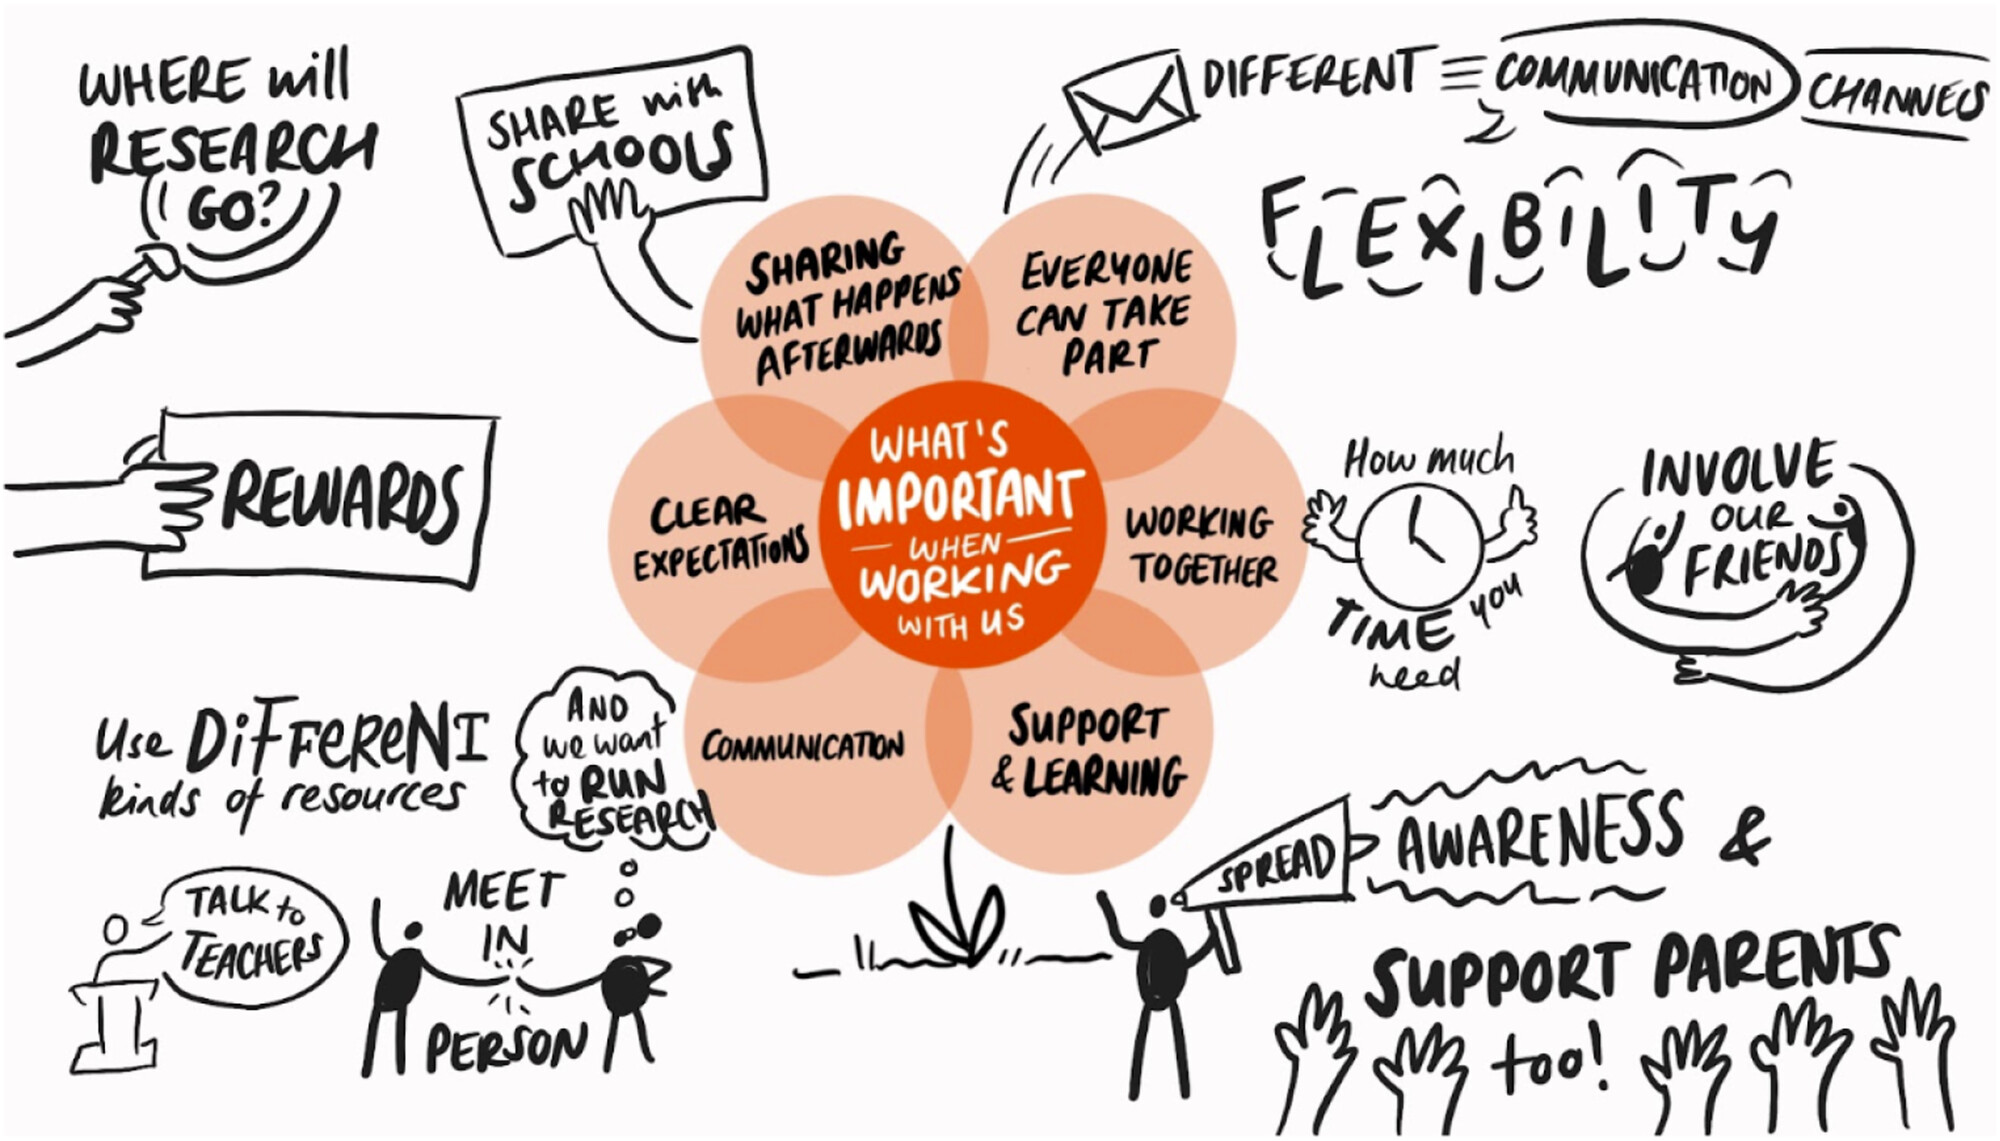 WHERE will
RESEARCH
GO?
SHARE with
SCHOOLS
DIFFERENT COMMUNICATION CHANNELS
FLEXIBILITY
SHARING
WHAT HAPPENS
AFTERWARDS
EVERYONE
CAN TAKE
PART
REWARDS
CLEAR
EXPECTATIONS
WHAT'S
IMPORTANT
WHEN
WORKING
WITH US
WORKING
TOGETHER
How much
TIME you
need
INVOLVE
OUR
FRIENDS
Use DiFFereNT
kinds of resources
AND
we want
to RUN
RESEARCH
COMMUNICATION
SUPPORT
& LEARNING
TALK to
TEACHERS
MEET
IN
PERSON
SPREAD AWARENESS &
SUPPORT PARENTS
too!